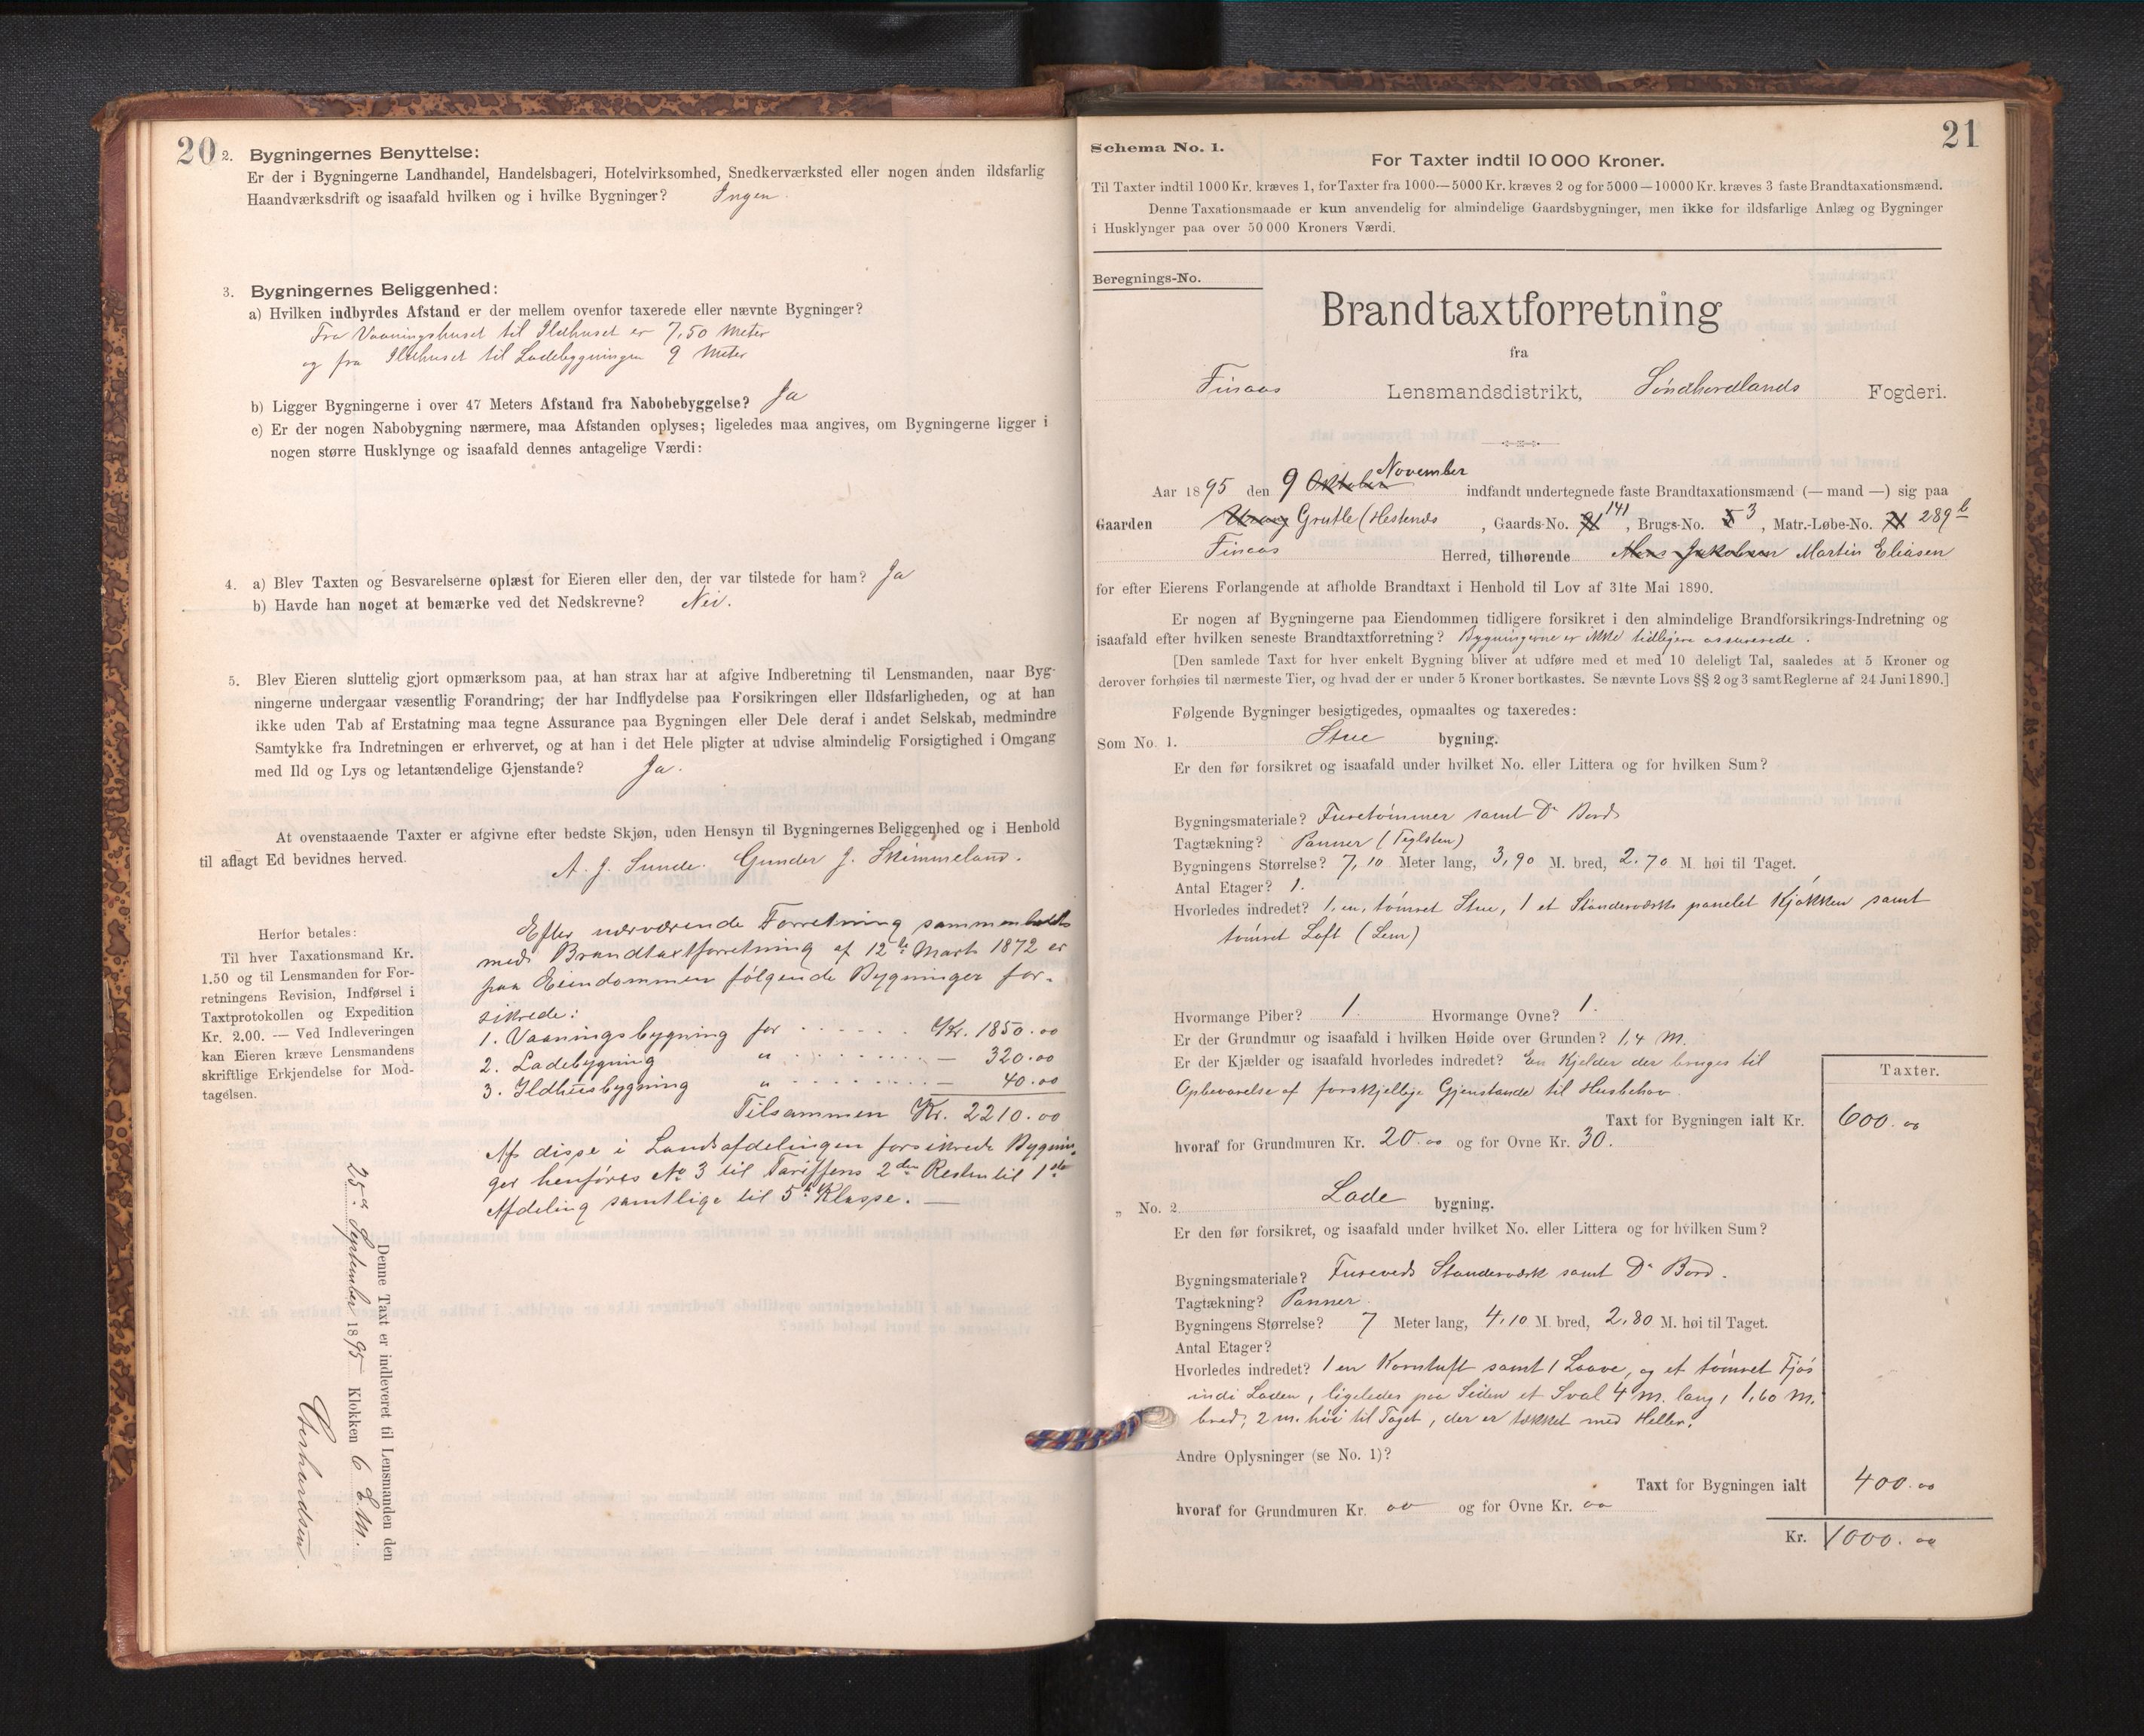 20
2. Bygningernes Benyttelse:
Er der i Bygningerne Landhandel, Handelsbageri, Hotelvirksomhed, Snedkerværksted eller nogen anden ildsfarlig
Haandværksdrift og isaafald hvilken og i hvilke Bygninger? Ingen.
3. Bygningernes Beliggenhed:
a) Hvilken indbyrdes Afstand er der mellem ovenfor taxerede eller nævnte Bygninger?
Fra Vaaningshuset til Ildhuset er 7,50 Meter
og fra Ildhuset til Ladebygningen 9 Meter
b) Ligger Bygningerne i over 47 Meters Afstand fra Nabobebyggelse? Ja
c) Er der nogen Nabobygning nærmere, maa Afstanden oplyses; ligeledes maa angives, om Bygningerne ligger i
nogen større Husklynge og isaafald dennes antagelige Værdi:
4. a) Blev Taxten og Besvarelserne oplæst for Eieren eller den, der var tilstede for ham? Ja
b) Havde han noget at bemærke ved det Nedskrevne? Nei.
5. Blev Eieren sluttelig gjort opmærksom paa, at han strax har at afgive Indberetning til Lensmanden, naar Byg-
ningerne undergaar væsentlig Forandring; der har Indflydelse paa Forsikringen eller Ildsfarligheden, og at han
ikke uden Tab af Erstatning maa tegne Assurance paa Bygningen eller Dele deraf i andet Selskab, medmindre
Samtykke fra Indretningen er erhvervet, og at han i det Hele pligter at udvise almindelig Forsigtighed i Omgang
med Ild og Lys og letantændelige Gjenstande? Ja.
At ovenstaaende Taxter er afgivne efter bedste Skjøn, uden Hensyn til Bygningernes Beliggenhed og i Henhold
til aflagt Ed bevidnes herved.
A. J. Sunde. Gunder J. Skimmeland.
Herfor betales:
Til hver Taxationsmand Kr.
1.50 og til Lensmanden for For-
retningens Revision, Indførsel i
Taxtprotokollen og Expedition
Kr. 2.00. — Ved Indleveringen
kan Eieren kræve Lensmandens
skriftlige Erkjendelse for Mod-
tagelsen.
Efter nærværende Forretning sammenholdt
med Brandtaxtforretning af 12te Marts 1872 er
paa Eiendommen følgende Bygninger for-
sikrede:
1. Vaaningsbygning for . . . . . . Kr. 1850.00
2. Ladebygning " . . . . . . . . — 320.00
3. Ildhusbygning " . . . . . . . . — 40.00
Tilsammen Kr. 2210.00
Af disse i Landsafdelingen forsikrede Bygnin-
ger henføres No 3 til Tariffens 2den Resten til 1ste
Afdeling samtlige til 5te Klasse. —
Denne Taxt er indleveret til Lensmanden den
25de September 1895 Klokken 6 E.M.
21
Schema No. 1.
For Taxter indtil 10 000 Kroner.
Til Taxter indtil 1000 Kr. kræves 1, for Taxter fra 1000—5000 Kr. kræves 2 og for 5000—10000 Kr. kræves 3 faste Brandtaxationsmænd.
Denne Taxationsmaade er kun anvendelig for almindelige Gaardsbygninger, men ikke for ildsfarlige Anlæg og Bygninger
i Husklynger paa over 50 000 Kroners Værdi.
Beregnings-No.
Brandtaxtforretning
fra
Finaas Lensmandsdistrikt, Søndhordlands Fogderi.
November
Aar 1895 den 9 Oktober indfandt undertegnede faste Brandtaxationsmænd (— mand —) sig paa
Gaarden Grutle (Hestenes , Gaards-No. 141, Brugs-No. 3, Matr.-Løbe-No. 289b
Finaas Herred, tilhørende Jakobsen Martin Eliasen
for efter Eierens Forlangende at afholde Brandtaxt i Henhold til Lov af 31te Mai 1890.
Er nogen af Bygningerne paa Eiendommen tidligere forsikret i den almindelige Brandforsikrings-Indretning og
isaafald efter hvilken seneste Brandtaxtforretning? Bygningerne er ikke tidligere assurerede.
[Den samlede Taxt for hver enkelt Bygning bliver at udføre med et med 10 deleligt Tal, saaledes at 5 Kroner og
derover forhøies til nærmeste Tier, og hvad der er under 5 Kroner bortkastes. Se nævnte Lovs §§ 2 og 3 samt Reglerne af 24 Juni 1890.]
Følgende Bygninger besigtigedes, opmaaltes og taxeredes:
Som No. 1. Stue bygning.
Er den før forsikret og isaafald under hvilket No. eller Littera og for hvilken Sum?
Bygningsmateriale? Furetømmer samt Do Bord
Tagtækning? Panner (Teglsten)
Bygningens Størrelse? 7,10 Meter lang, 3,90 M. bred, 2,70 M. høi til Taget.
Antal Etager? 1.
Hvorledes indredet? 1, en, tømret Stue, 1 et Standerværks panelet Kjøkken samt
tømret Loft (Lem)
Hvormange Piber? 1. Hvormange Ovne? 1.
Er der Grundmur og isaafald i hvilken Høide over Grunden? 1,4 M.
Er der Kjælder og isaafald hvorledes indredet? En Kjelder der bruges til
Opbevarelse af forskjellige Gjenstande til Husbehov.
Taxter.
Taxt for Bygningen ialt Kr. 600.00
hvoraf for Grundmuren Kr. 20.00 og for Ovne Kr. 30.
„ No. 2. Lade bygning.
Er den før forsikret, og isaafald under hvilket No. eller Littera og for hvilken Sum?
Bygningsmateriale? Fureveds Standerværk samt Do Bord.
Tagtækning? Panner.
Bygningens Størrelse? 7 Meter lang, 4,10 M. bred, 2,80 M. høi til Taget.
Antal Etager?
Hvorledes indredet? 1 en Kornluft samt 1 Laave, og et tømret Fjøs
indi Laden, ligeledes paa Siden et Sval 4 M. lang, 1,60 M.
bred, 2 m. høi til Taget, der er tækket med Heller.
Andre Oplysninger (se No. 1)?
Taxt for Bygningen ialt 400.00
hvoraf for Grundmuren Kr. 00 og for Ovne Kr. 00
Kr. 1000.00